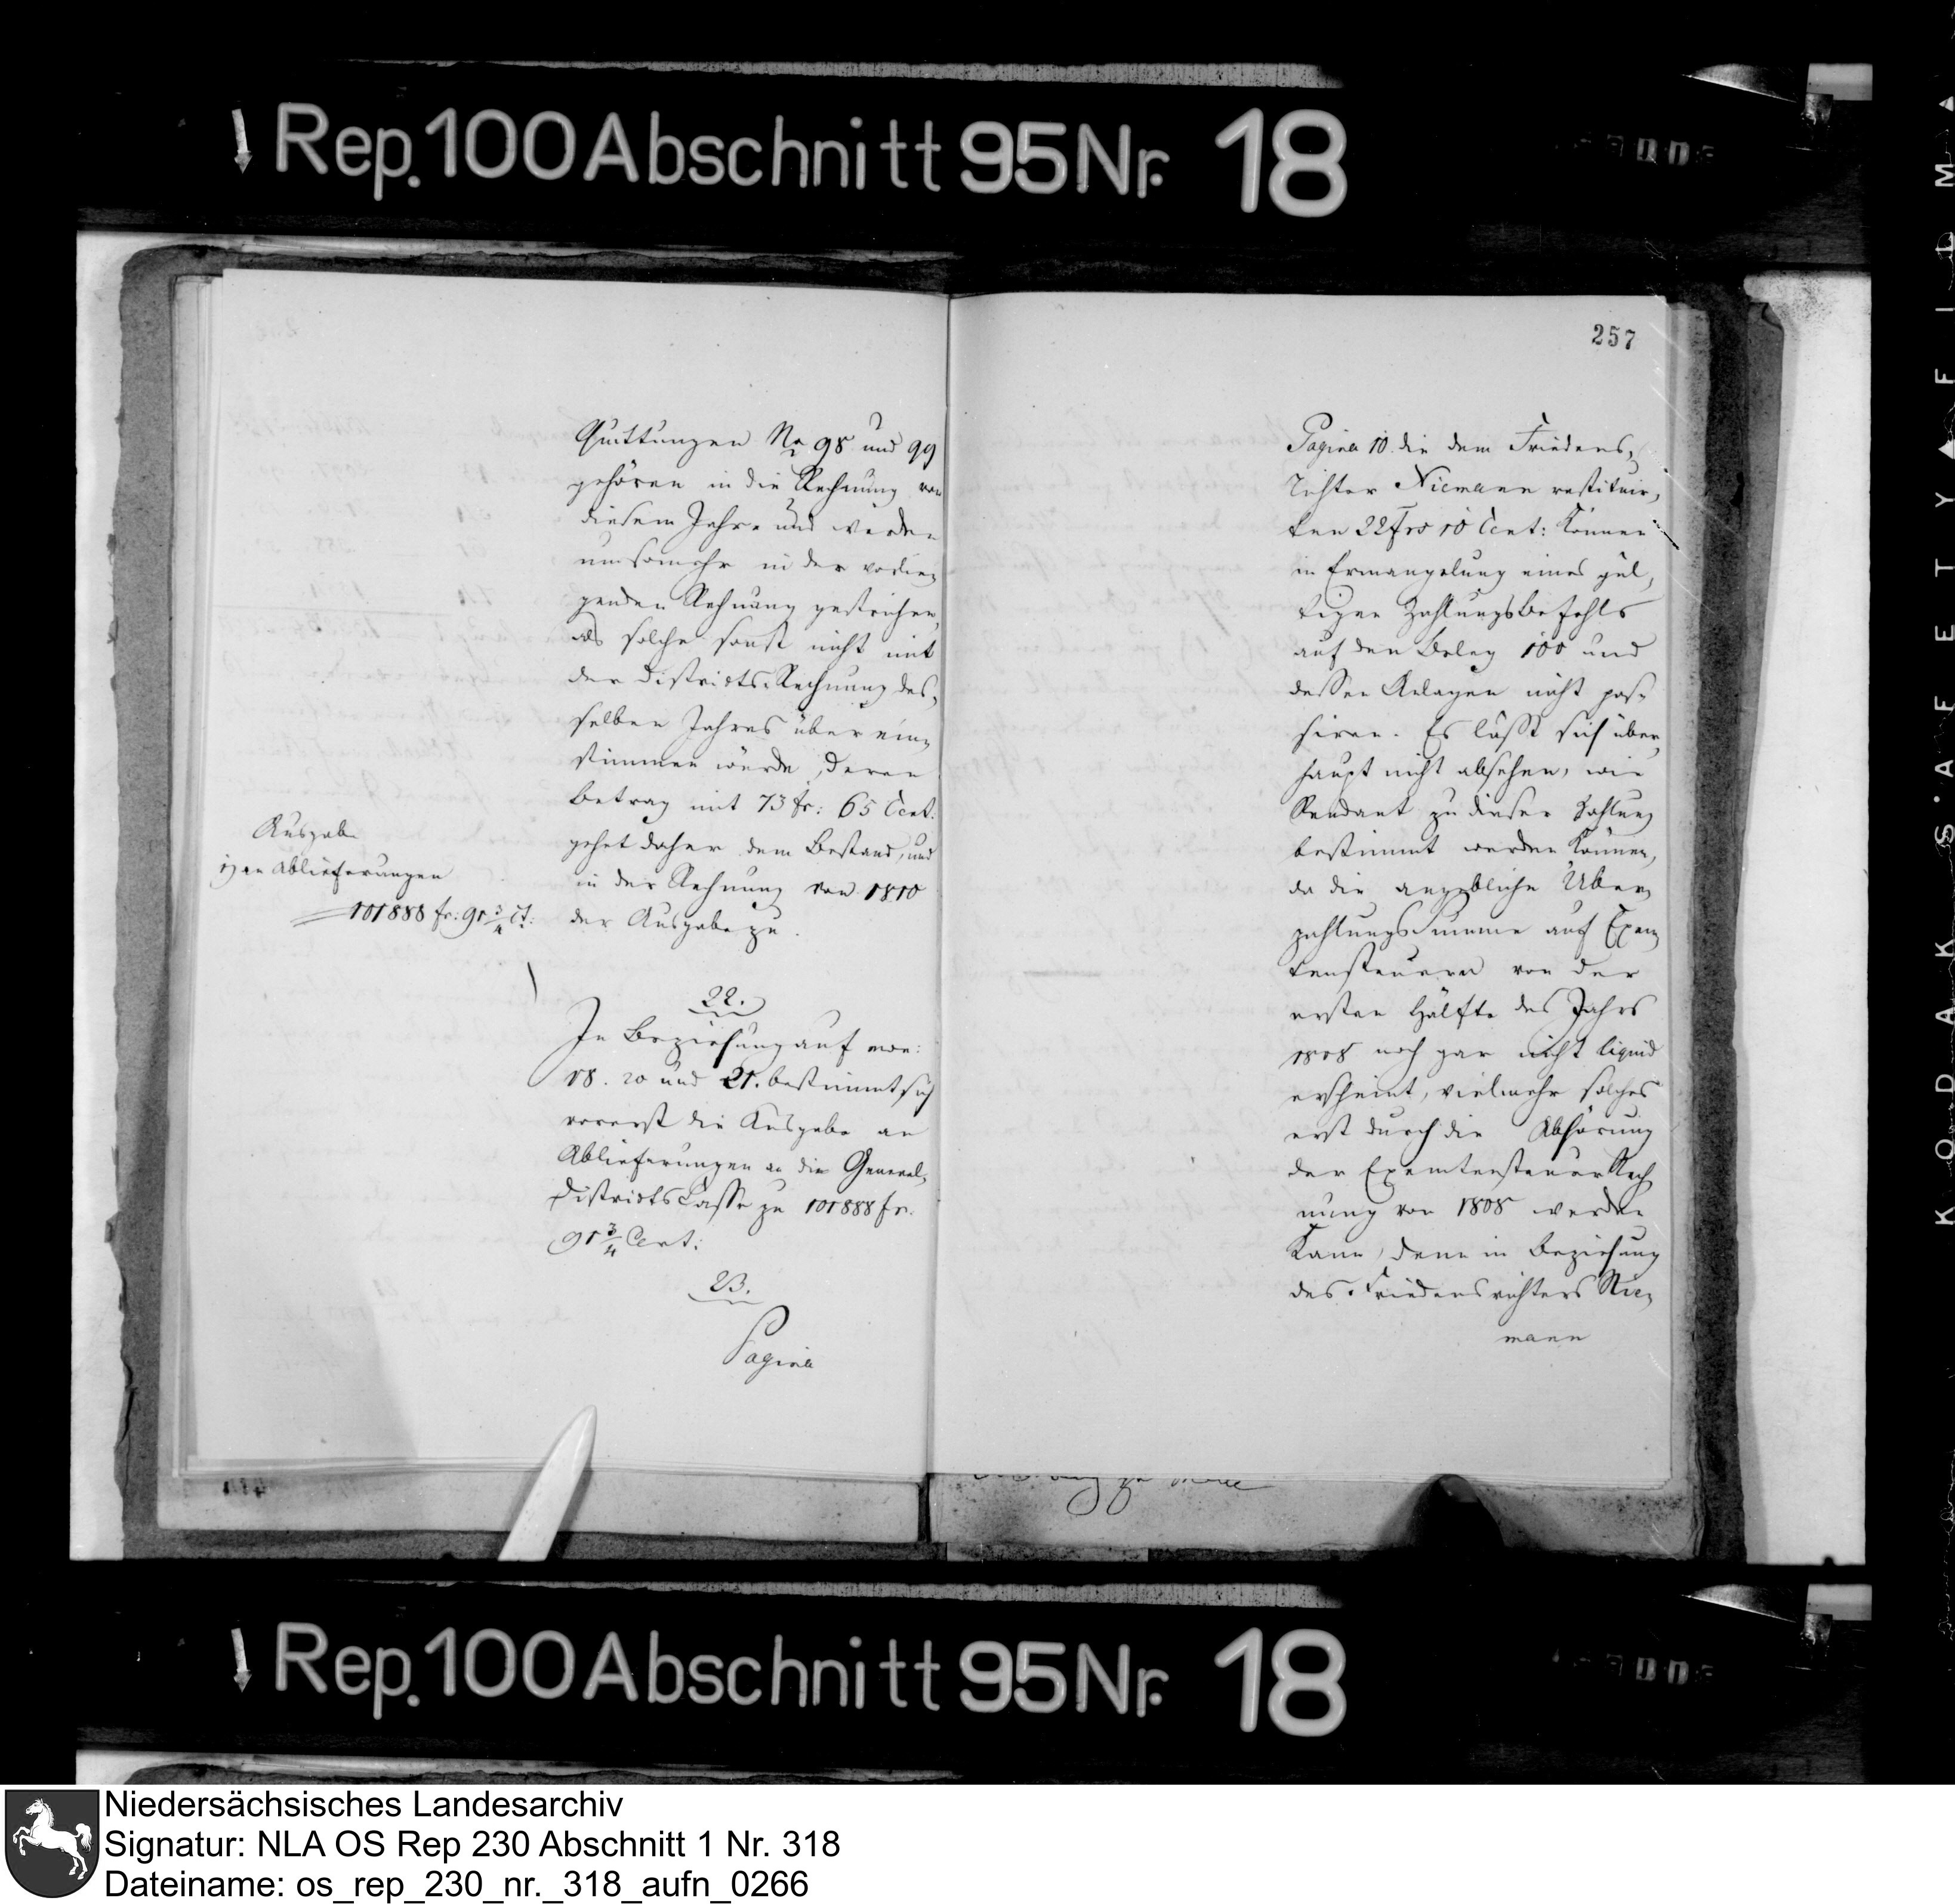 Rep. 100 Abschnitt 95 Nr. 18
Quittungen No 98 und 99
gehören in die Rechnung von
diesem Jahre und werden
umsomehr in der vorlie„
genden Rechnung gestrichen,
als solche sonst nicht mit
der Districts-Rechnung des„
selben Jahres überein„
stimmen würde, deren
Betrag mit 73 fr: 65 Cent.
gehet daher dem Bestand, und
in der Rechnung von 1810
der Ausgabe zu.
Ausgabe
an Ablieferungen
101888 fr: 91 3/4 Ct:
22.
In Beziehung auf mon:
18. 20 und 21. bestimmt sich
vorerst die Ausgabe an
Ablieferungen an die General„
Districts Casse zu 101888 fr.
91 3/4 Cent:
23.
Pagina
257
Pagina 10 die dem Friedens„
richter Niemann restituir„
ten 22 frs 10 Cent: können
in Ermangelung eines gül„
tigen Zahlungsbefehls
auf den Beleg 100 und
dessen Anlagen nicht pas„
siren. Es läßt sich über„
haupt nicht absehen, wie
Rendant zu dieser Zahlung
bestimmt werden können,
da die angebliche Über„
zahlungs Summe auf Exem„
tensteuern von der
ersten Hälfte des Jahrs
1808 noch gar nicht liquid
erscheint, vielmehr solches
erst durch die Abhörung
der Exemtensteuer Rech„
nung von 1808 werden
kann, denn in Beziehung
des Friedensrichters Nie„
mann
Rep. 100 Abschnitt 95 Nr. 18
KODAK SAFETY FILM
Niedersächsisches Landesarchiv
Signatur: NLA OS Rep 230 Abschnitt 1 Nr. 318
Dateiname: os_rep_230_nr._318_aufn_0266